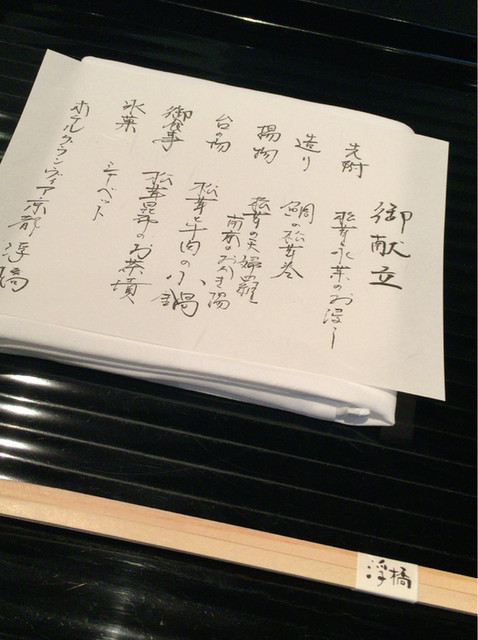 御献立
先附
松茸と水菜のお浸し
造り
鯛の松茸巻
揚物
松茸の天婦羅
南京のおかき揚
台の物
松茸と牛肉の小鍋
御食事
松茸昆布のお茶漬
水菓
シャーベット
ホテルグランヴィア京都 浮橋
浮橋